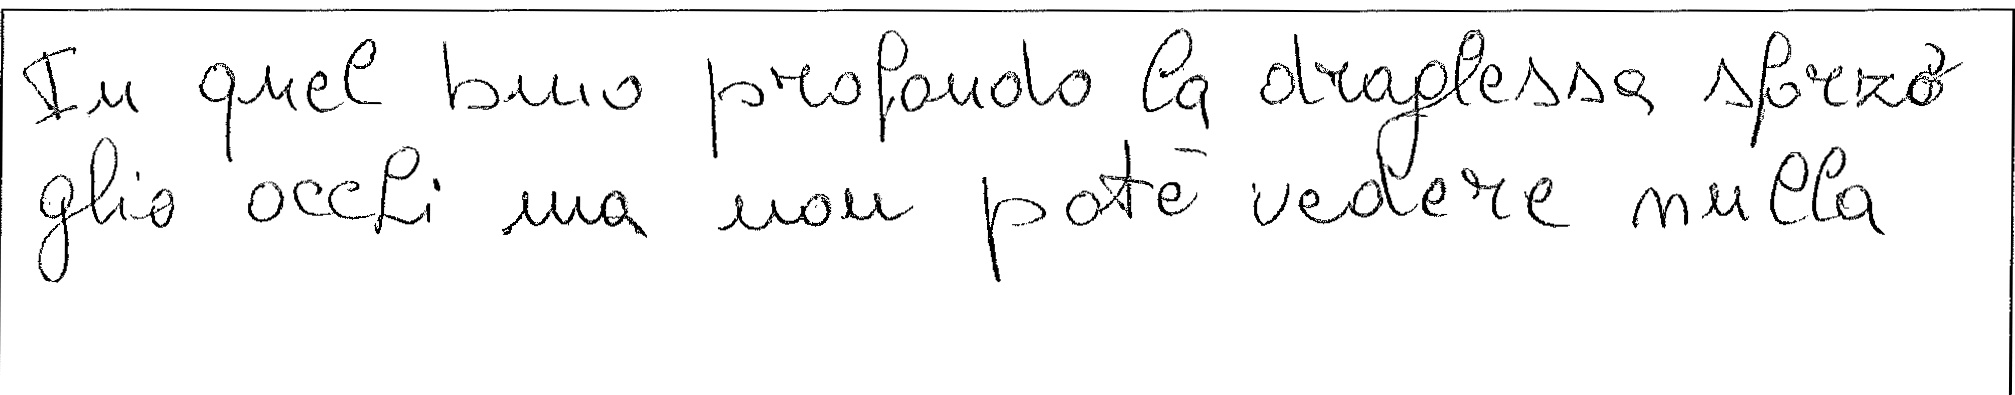 In quel buio profondo la draglessa sforzò
glio occhi ma non potè vedere nulla